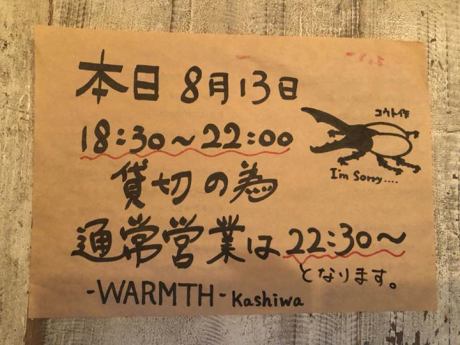 本日 8月13日
18:30〜22:00
コウト作
I'm Sorry....
貸切の為
通常営業は 22:30〜
となります。
-WARMTH- Kashiwa